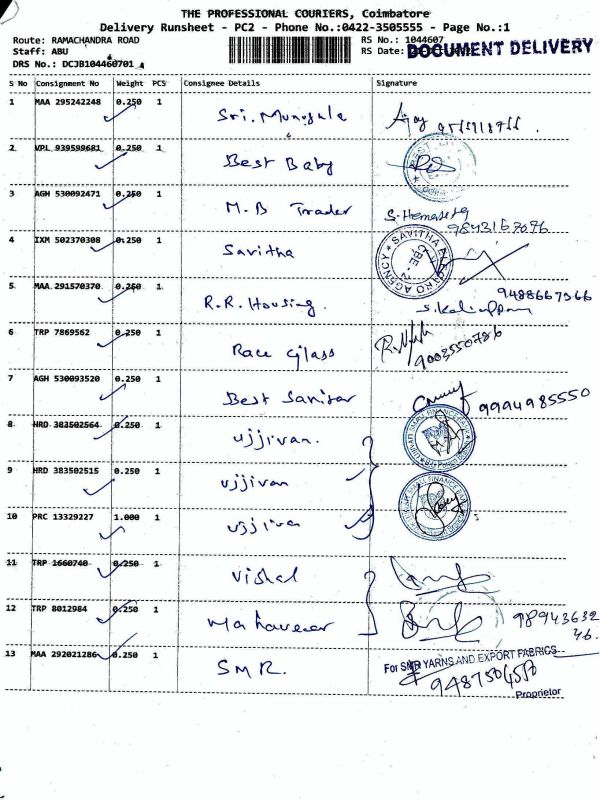 THE PROFESSIONAL COURIERS, Coimbatore
Delivery Runsheet - PC2 - Phone No.:0422-3505555 - Page No.:1
Route: RAMACHANDRA ROAD RS No.: 1044607
Staff: ABU RS Date:
DOCUMENT DELIVERY
DRS No.: DCJB104460701
S No Consignment No Weight PCS Consignee Details Signature
1 MAA 295242248 0.250 1 Sri. Munusula Ajay
2 VPL 939599681 0.250 1 Best Baby
3 AGH 530092471 0.250 1 M.B Trader S. Hemasree
9843167076
4 IXM 502370308 0.250 1 Savitha SAVITHA ELECTRO AGENCY CBE - 2
5 MAA 291570370 0.250 1 R.R. Housing. 9488667966
S. Kaliappan
6 TRP 7869562 0.250 1 Race Glass 9003550786
7 AGH 530093520 0.250 1 Best Sanitar 9994985550
8 HRD 383502564 0.250 1 Ujjivan.
9 HRD 383502515 0.250 1 Ujjivan
10 PRC 13329227 1.000 1 Ujjivan
11 TRP 1660740 0.250 1 Vishal
12 TRP 8012984 0.250 1 Mahaveer 98943632
46.
13 MAA 292021286 0.250 1 SMR. For SMR YARNS AND EXPORT FABRICS
Proprietor